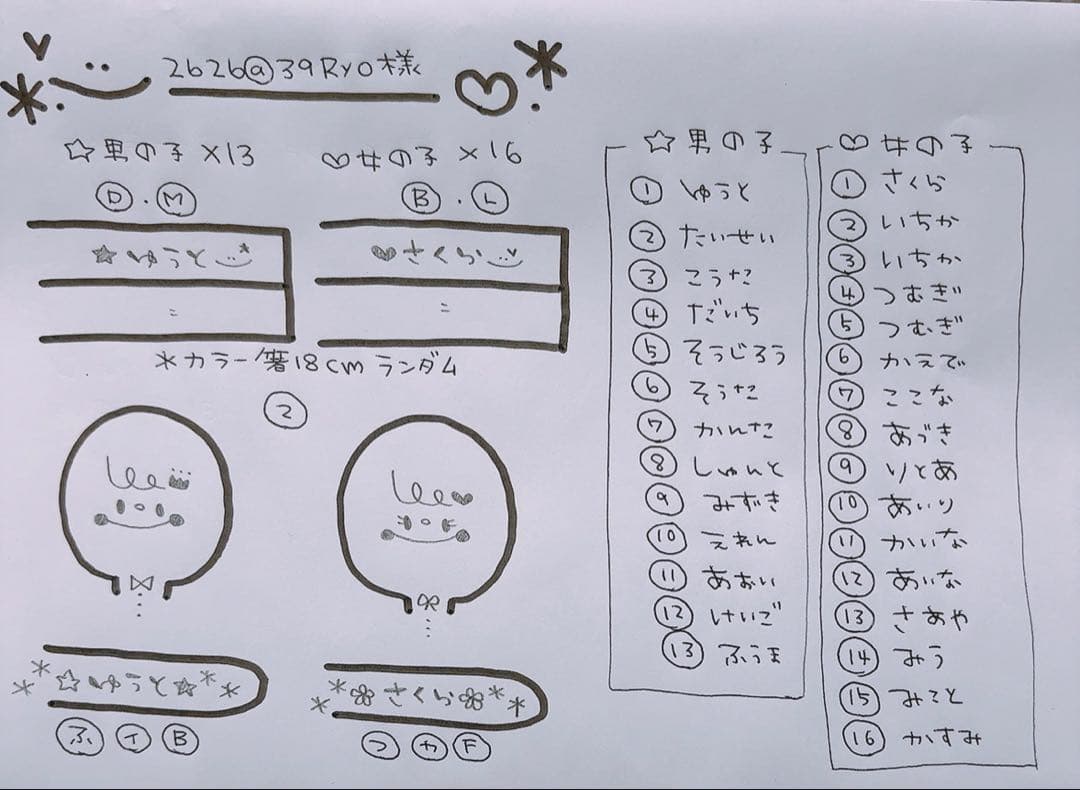 2626@39Ryo様
☆男の子 ×13
♡女の子 ×16
Ⓓ・Ⓜ
Ⓑ・Ⓛ
★ゆうと
♥さくら
=
=
*カラー箸18cm ランダム
②
☆ゆうと☆
さくら
ふ イ B
つ カ F
☆男の子
① ゆうと
② たいせい
③ こうた
④ だいち
⑤ そうじろう
⑥ そうた
⑦ かんた
⑧ しゅんと
⑨ みずき
⑩ えれん
⑪ あおい
⑫ けいご
⑬ ふうま
♡女の子
① さくら
② いちか
③ いちか
④ つむぎ
⑤ つむぎ
⑥ かえで
⑦ ここな
⑧ あづき
⑨ りとあ
⑩ あいり
⑪ かいな
⑫ あいな
⑬ さあや
⑭ みう
⑮ みこと
⑯ かすみ